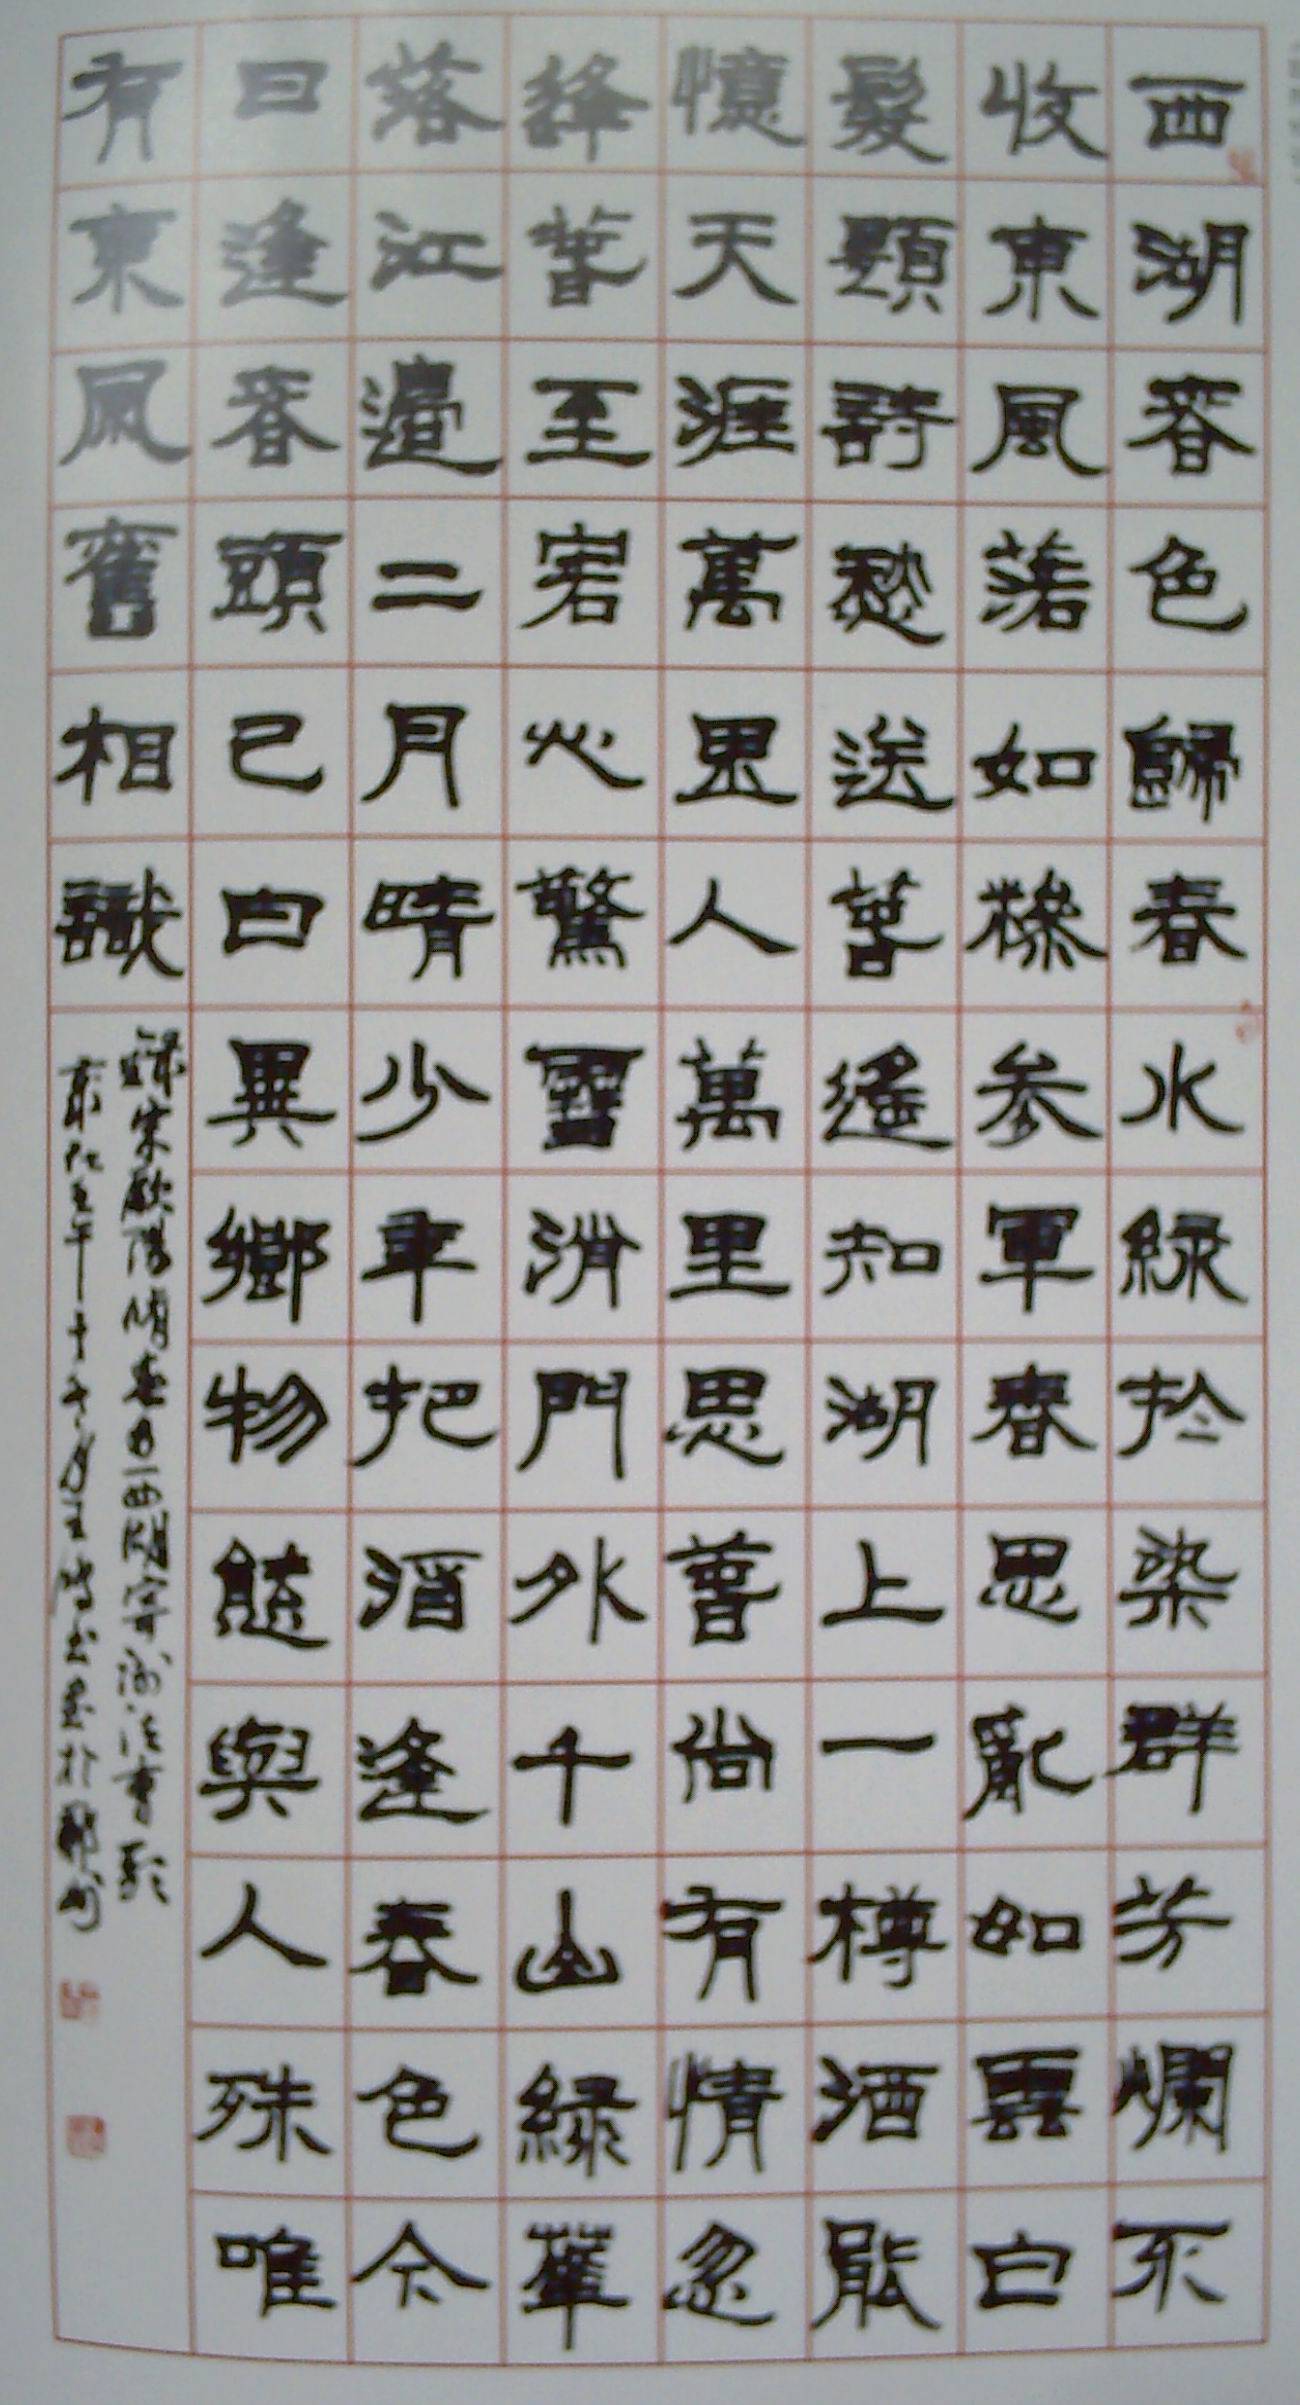 西湖春色歸春水綠扵染群芳爛不
收東風落如糝参軍春思亂如雲白
髮題詩愁送春遙知湖上一樽酒能
憶天涯萬里人萬里思春尚有情忽
逢春至客心驚雪消門外千山綠華
落江邊二月晴少年把酒逢春色今
日逢春頭已白異鄉物態與人殊唯
有東風舊相識
錄宋歐陽脩春日西湖寄謝法曹歌
歲在壬午年十